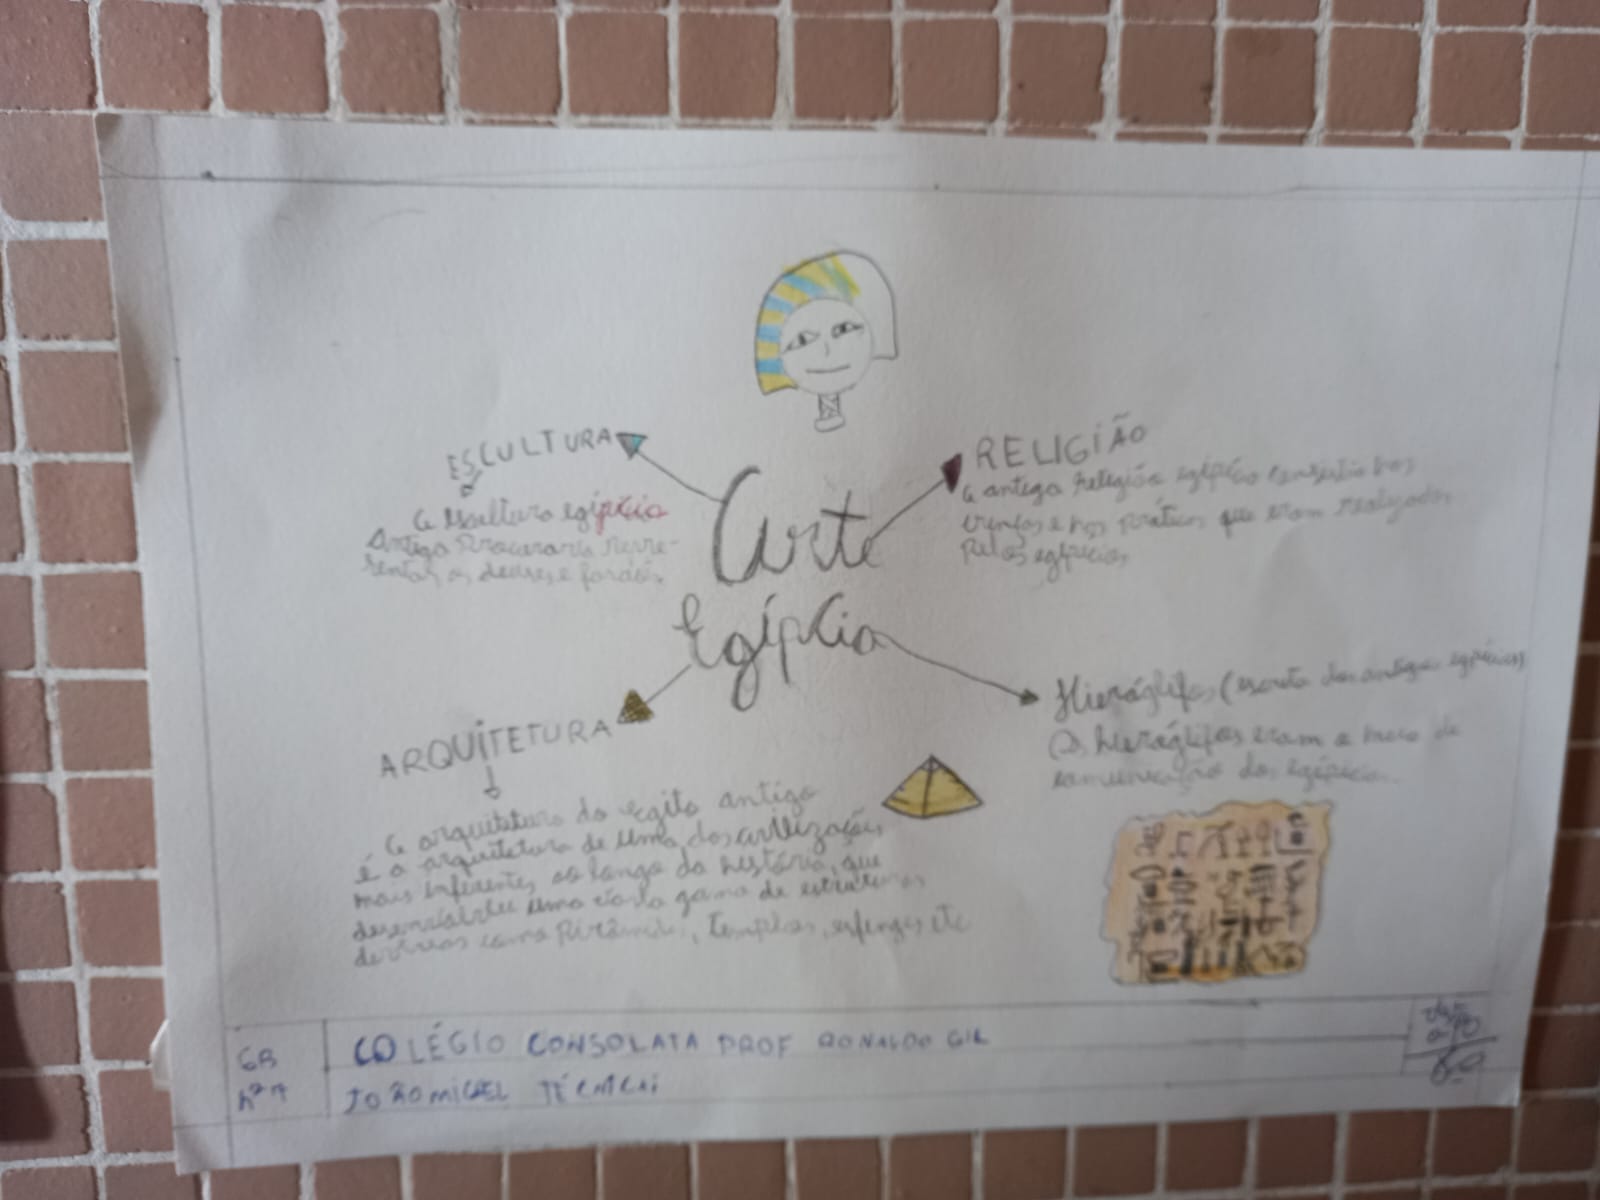 ESCULTURA
A escultura egípcia
Antiga procurava repre-
sentar os deuses e faraós.
RELIGIÃO
A antiga religião egípcia consistia nas
crenças e nas práticas que eram realizadas
pelos egípcios
Arte
Egípcia
ARQUITETURA
A arquitetura do egito antigo
é a arquitetura de uma das civilizações
mais influentes ao longo da história, que
desenvolveu uma vasta gama de estruturas
diversas como pirâmides, templos, esfinges etc
Hieróglifos (escrita dos antigos egípcios)
Os hieróglifos eram o meio de
comunicação dos egípcios
6B
COLÉGIO CONSOLATA PROF RONALDO GIL
nº 17
JOÃO MIGUEL